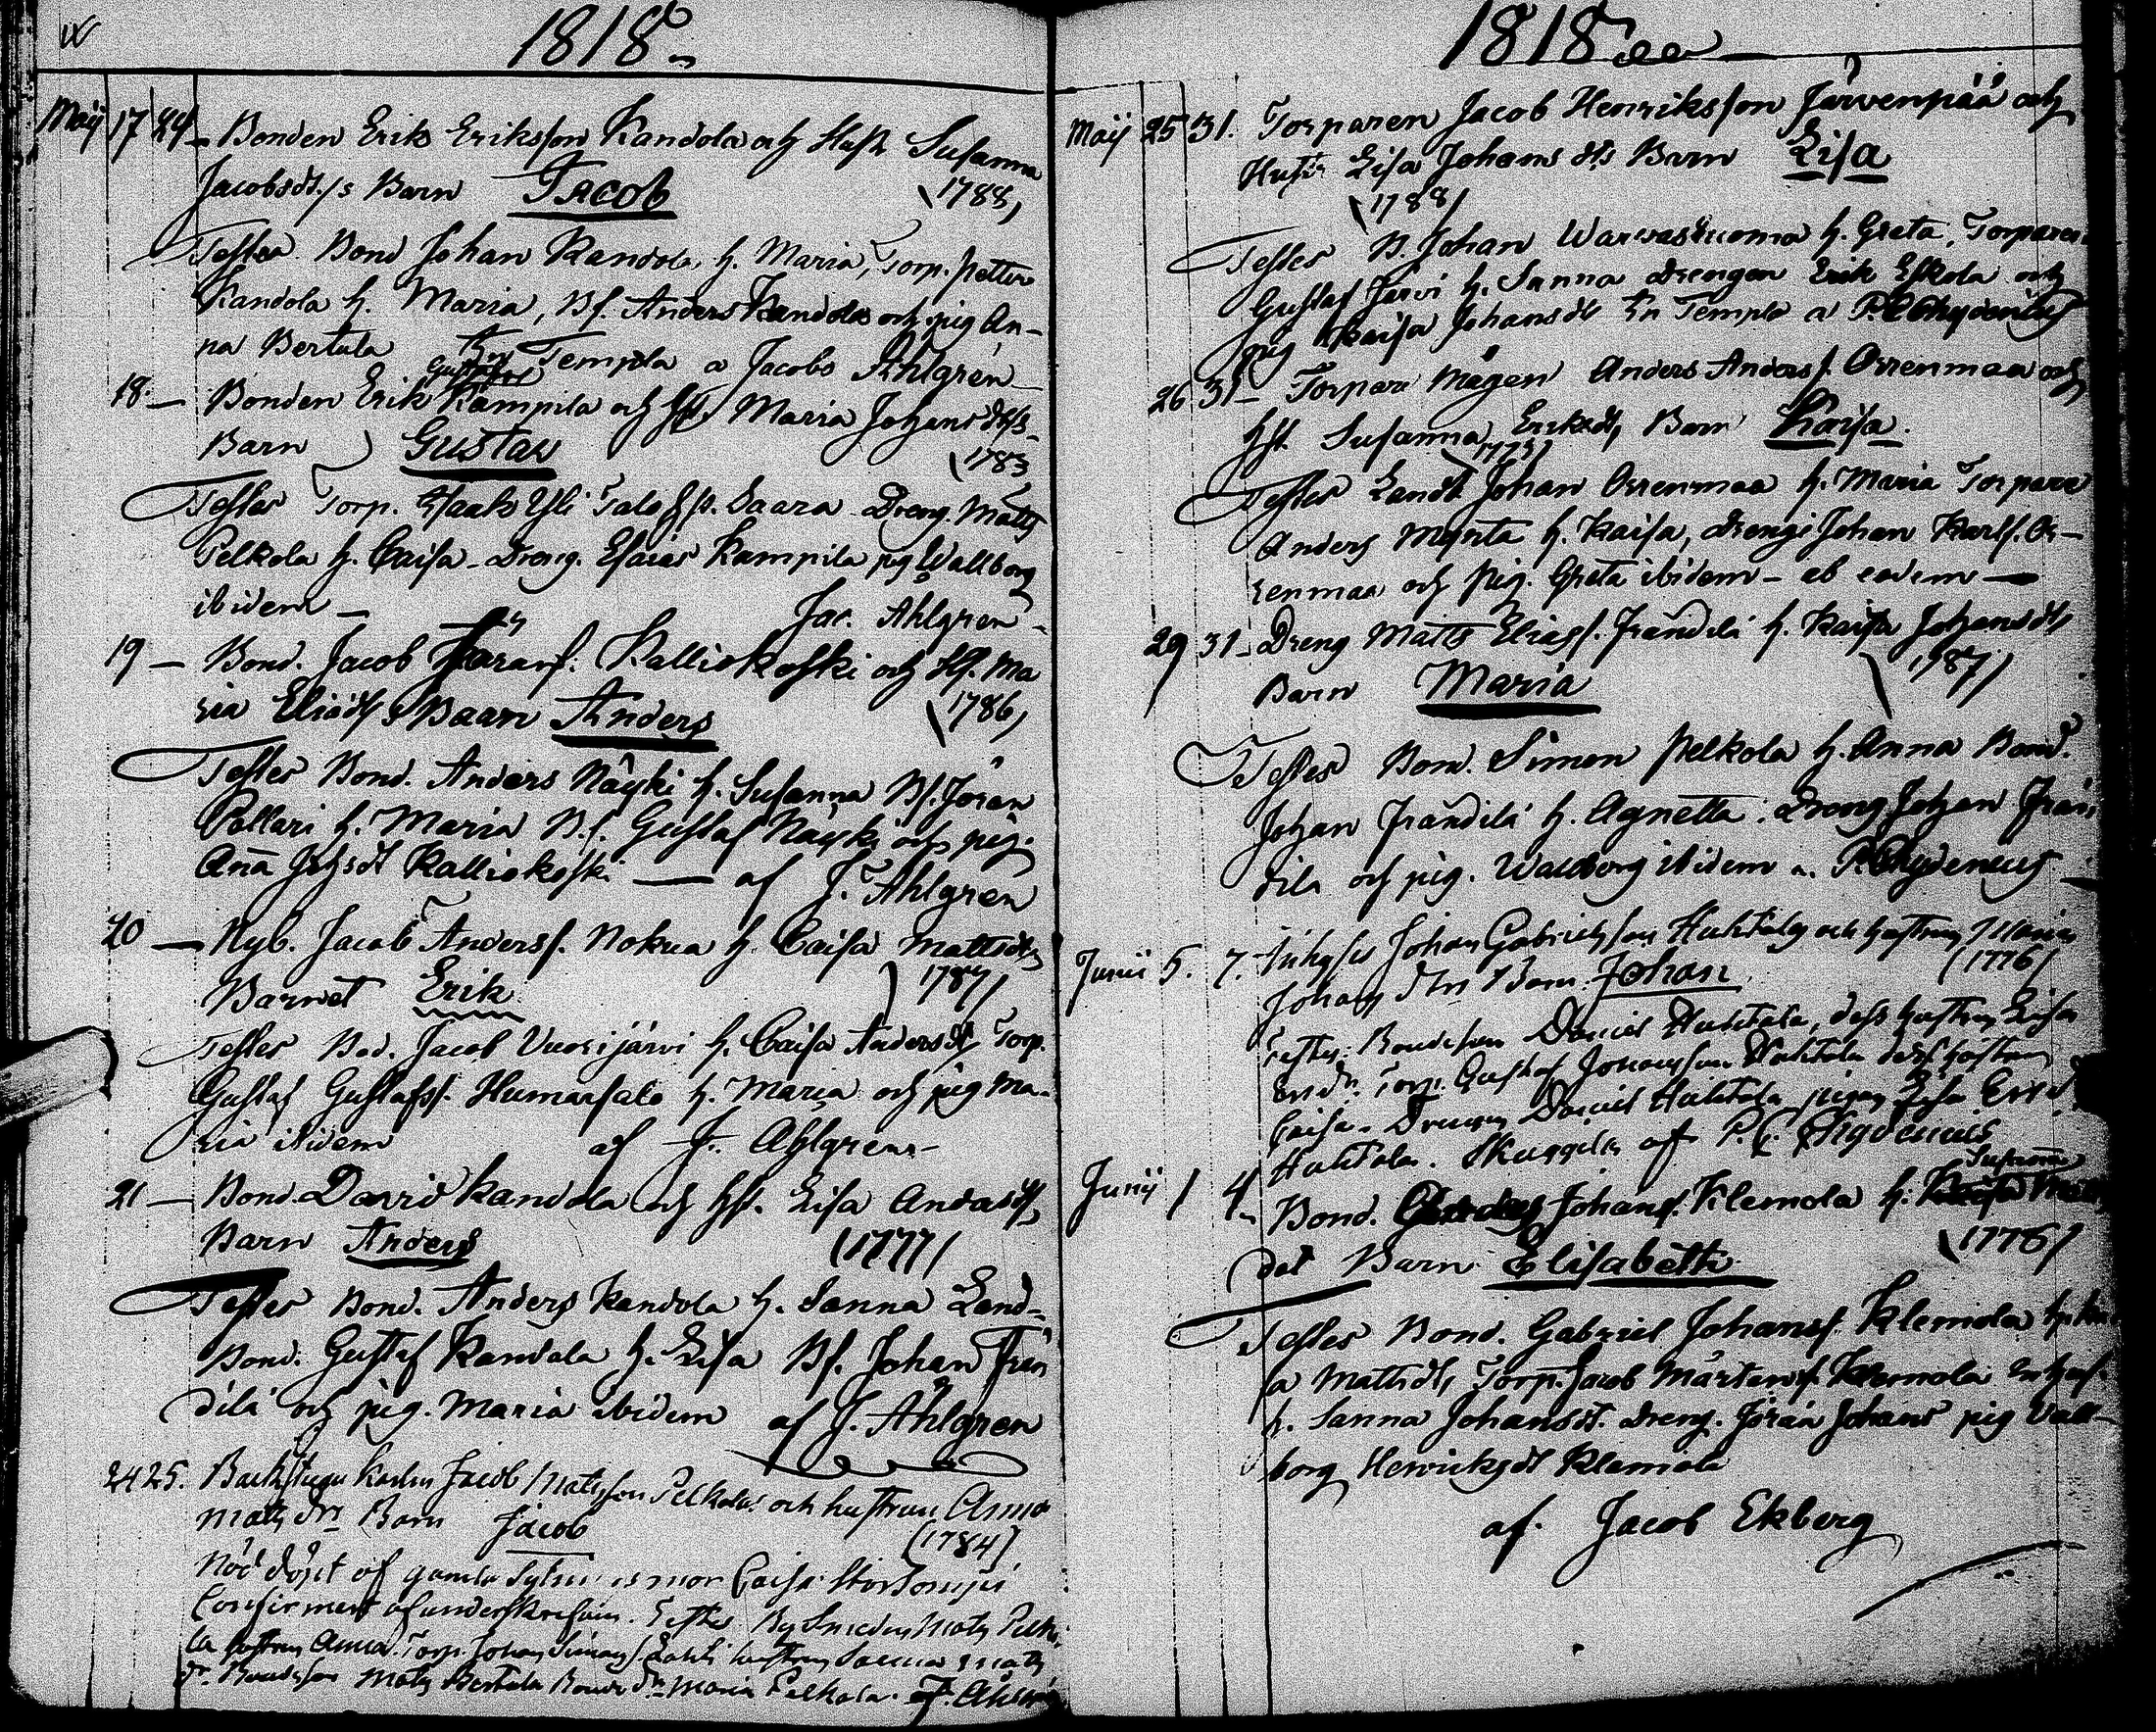 1818
Maij 17 24 Bonden Erik Eriksson Kandola och Hustr Susanna
Jacobsdt./s Barn Jacob 1788
Testes Bond Johan Kandola h. Maria, Torp. Petter
Kandola h. Maria, Bs. Anders Kandola och pig. An-
na Bertula Templa a Jacobo Ahlgren
18. — Bonden Erik Kampila och Hst. Maria Johansdtrs
Barn Gustav 1783
Testes Torp. Isaak Yli Talo h. Saara Dreng. Matts
Pelkola h. Caisa Dreng. Esaias Kampila pig Wallborg
ibidem — Jac. Ahlgren
19 — Bond. Jacob Jöranss. Kalliokoski och Hst. Ma
ria Eliædt s Baarn Anders 1786
Testes Bond. Anders Näyki h. Susanna Bs. Jöran
Pollari h. Maria B.s. Gustaf Näyki och pig.
Anna Johsdt Kalliokoski — af J. Ahlgren
20 — Nyb. Jacob Anderss. Nokua h. Caisa Mattsdtr
Barnet Erik 1787
Testes Bod. Jacob Vuorijärvi h. Caisa Andersdt Torp.
Gustaf Gustafss. Humarsalo h. Maria och pig Ma-
ria ibidem af J. Ahlgren
21 — Bond. David Kandola och Hst. Lisa Andersdt,
Barn Anders (1777)
Testes Bond. Anders Kandola h. Sanna Land-
Bond. Gustaf Kandola h. Lisa Bs. Johan Frän
dilä och pig. Maria ibidem af J. Åhlgren
24 25. Backstugu Karlen Jacob Matsson Pelkola och hustrun Anna
Mats dr Barn Jacob (1784)
Nöd döpt af gamla Caisa
af underskrefven. Testes By Smeden Mats Pelko
la hustrun Anna. Torp. Johan Simonss. Lahti hustrun Sanna Mats
dr. Bondeson Mats Bertula Bonde dr Maria Pelkola. af Åhlgren
1818
Maij 25 31. Torparen Jacob Henriksson Järvenpää och
Hustr Lisa Johans dtrs Barn Lisa
1788
Testes B. Johan h. Greta, Torparen
Gustaf Järvi h. Sanna Drengen Erik Eskola och
pig Kaisa Johansdt In Templo a P. Chydenius
26 31 — Torpare Mågen Anders Anderss. Orrenmaa och
Hst. Susanna Eriksdt, Barn Kaisa.
1775
Testes Landb. Johan Orrenmaa h. Maria Torpare
Anders Mynta h. Kaisa, Drengi Johan Karlss. Or-
renmaa och pig. Greta ibidem — ab eodem —
29 31 — Dreng Matts Eliass. Frändilä h. Kaisa Johansdt
Barn Maria 1787
Testes Bond. Simon Pelkola h. Anna Bond.
Johan Frändilä h. Agnetta. Dreng Johan Frän
dilä och pig. Wallborg ibidem a. P. Chydenius
Junii 5. 7. Inhyses Johan Gabrielsson Huhtala och hustrun Maria
Johans dtr Barn Johan (1776)
Testes: Bondeson Daniel Huhtala, dess hustrun Lisa
Torp. Gustaf Johansson Huhtala dess hustrun
Caisa. Drengen Daniel Huhtala pigan Lisa
Huhtala. af P. C. Chydenius
Junij 1 4. Bond. Johanss. Klemola h. Susanna
det Barn Elisabeth 1776
Testes Bond. Gabriel Johanss. Klemola h. Kai
sa Mattsdt, Torp. Jacob Mårtenss. Klemola
h. Sanna Johansdt. Dreng. Jöran Johans pig Vall-
borg Henricksdt Klemola
af. Jacob Ekberg